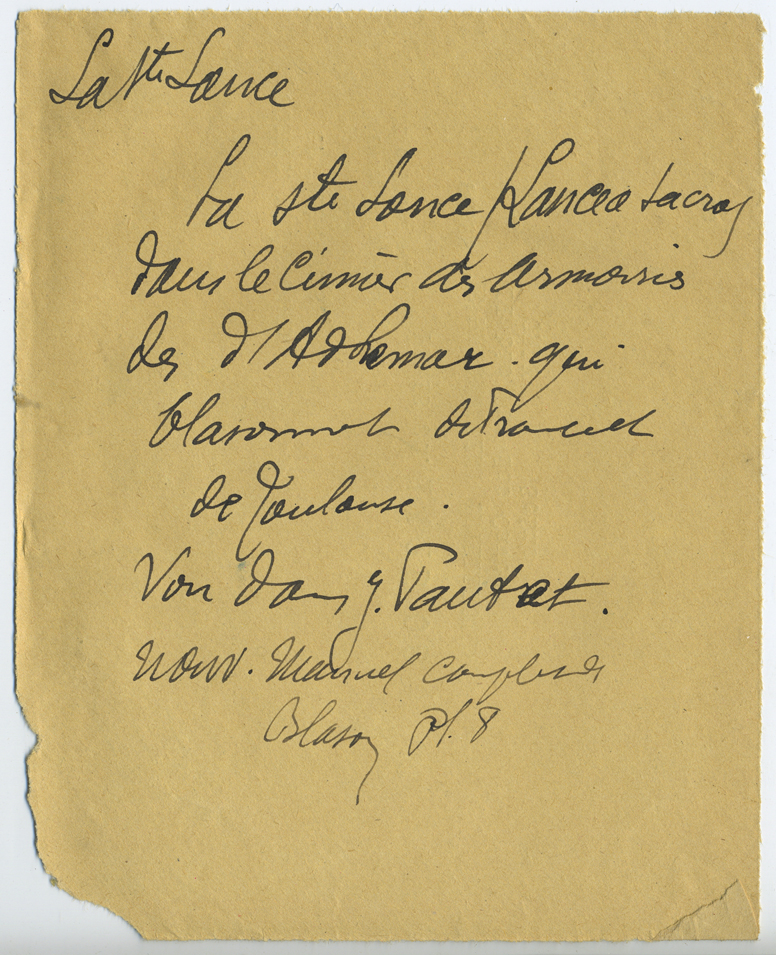 La Ste Lance
La ste Lance (Lancea sacra)
dans le Cimier des Armoiries
des d'Adhemar. qui
blasonnent
de Toulouse.
Voir dans J. Pautet.
Nouv. Manuel Complet de
Blason Pl. 8